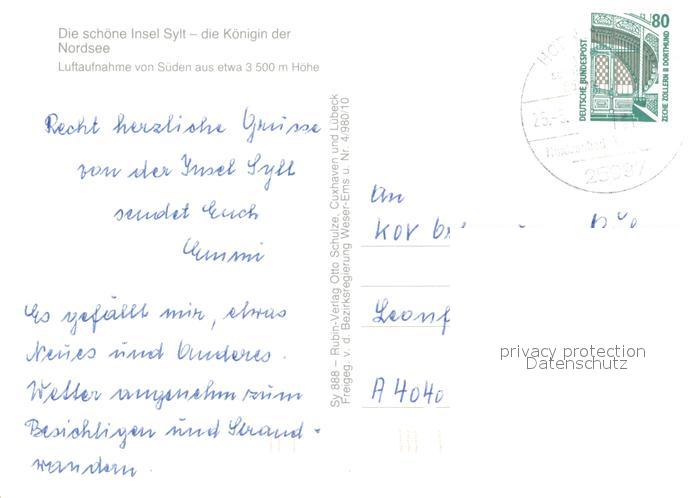 Die schöne Insel Sylt – die Königin der
Nordsee
Luftaufnahme von Süden aus etwa 3 500 m Höhe
Recht herzliche Grüsse
von der Insel Sylt
sendet Euch
Emmi
Es gefällt mir, etwas
Neues und Anderes.
Wetter angenehm zum
Besichtigen und Strand-
wandern.
Sy 888 – Rubin-Verlag Otto Schulze, Cuxhaven und Lübeck
Freigeg. v. d. Bezirksregierung Weser-Ems u. Nr. 4/980/10
80
DEUTSCHE BUNDESPOST
ZECHE ZOLLERN II DORTMUND
25997
An
A 4040
privacy protection
Datenschutz